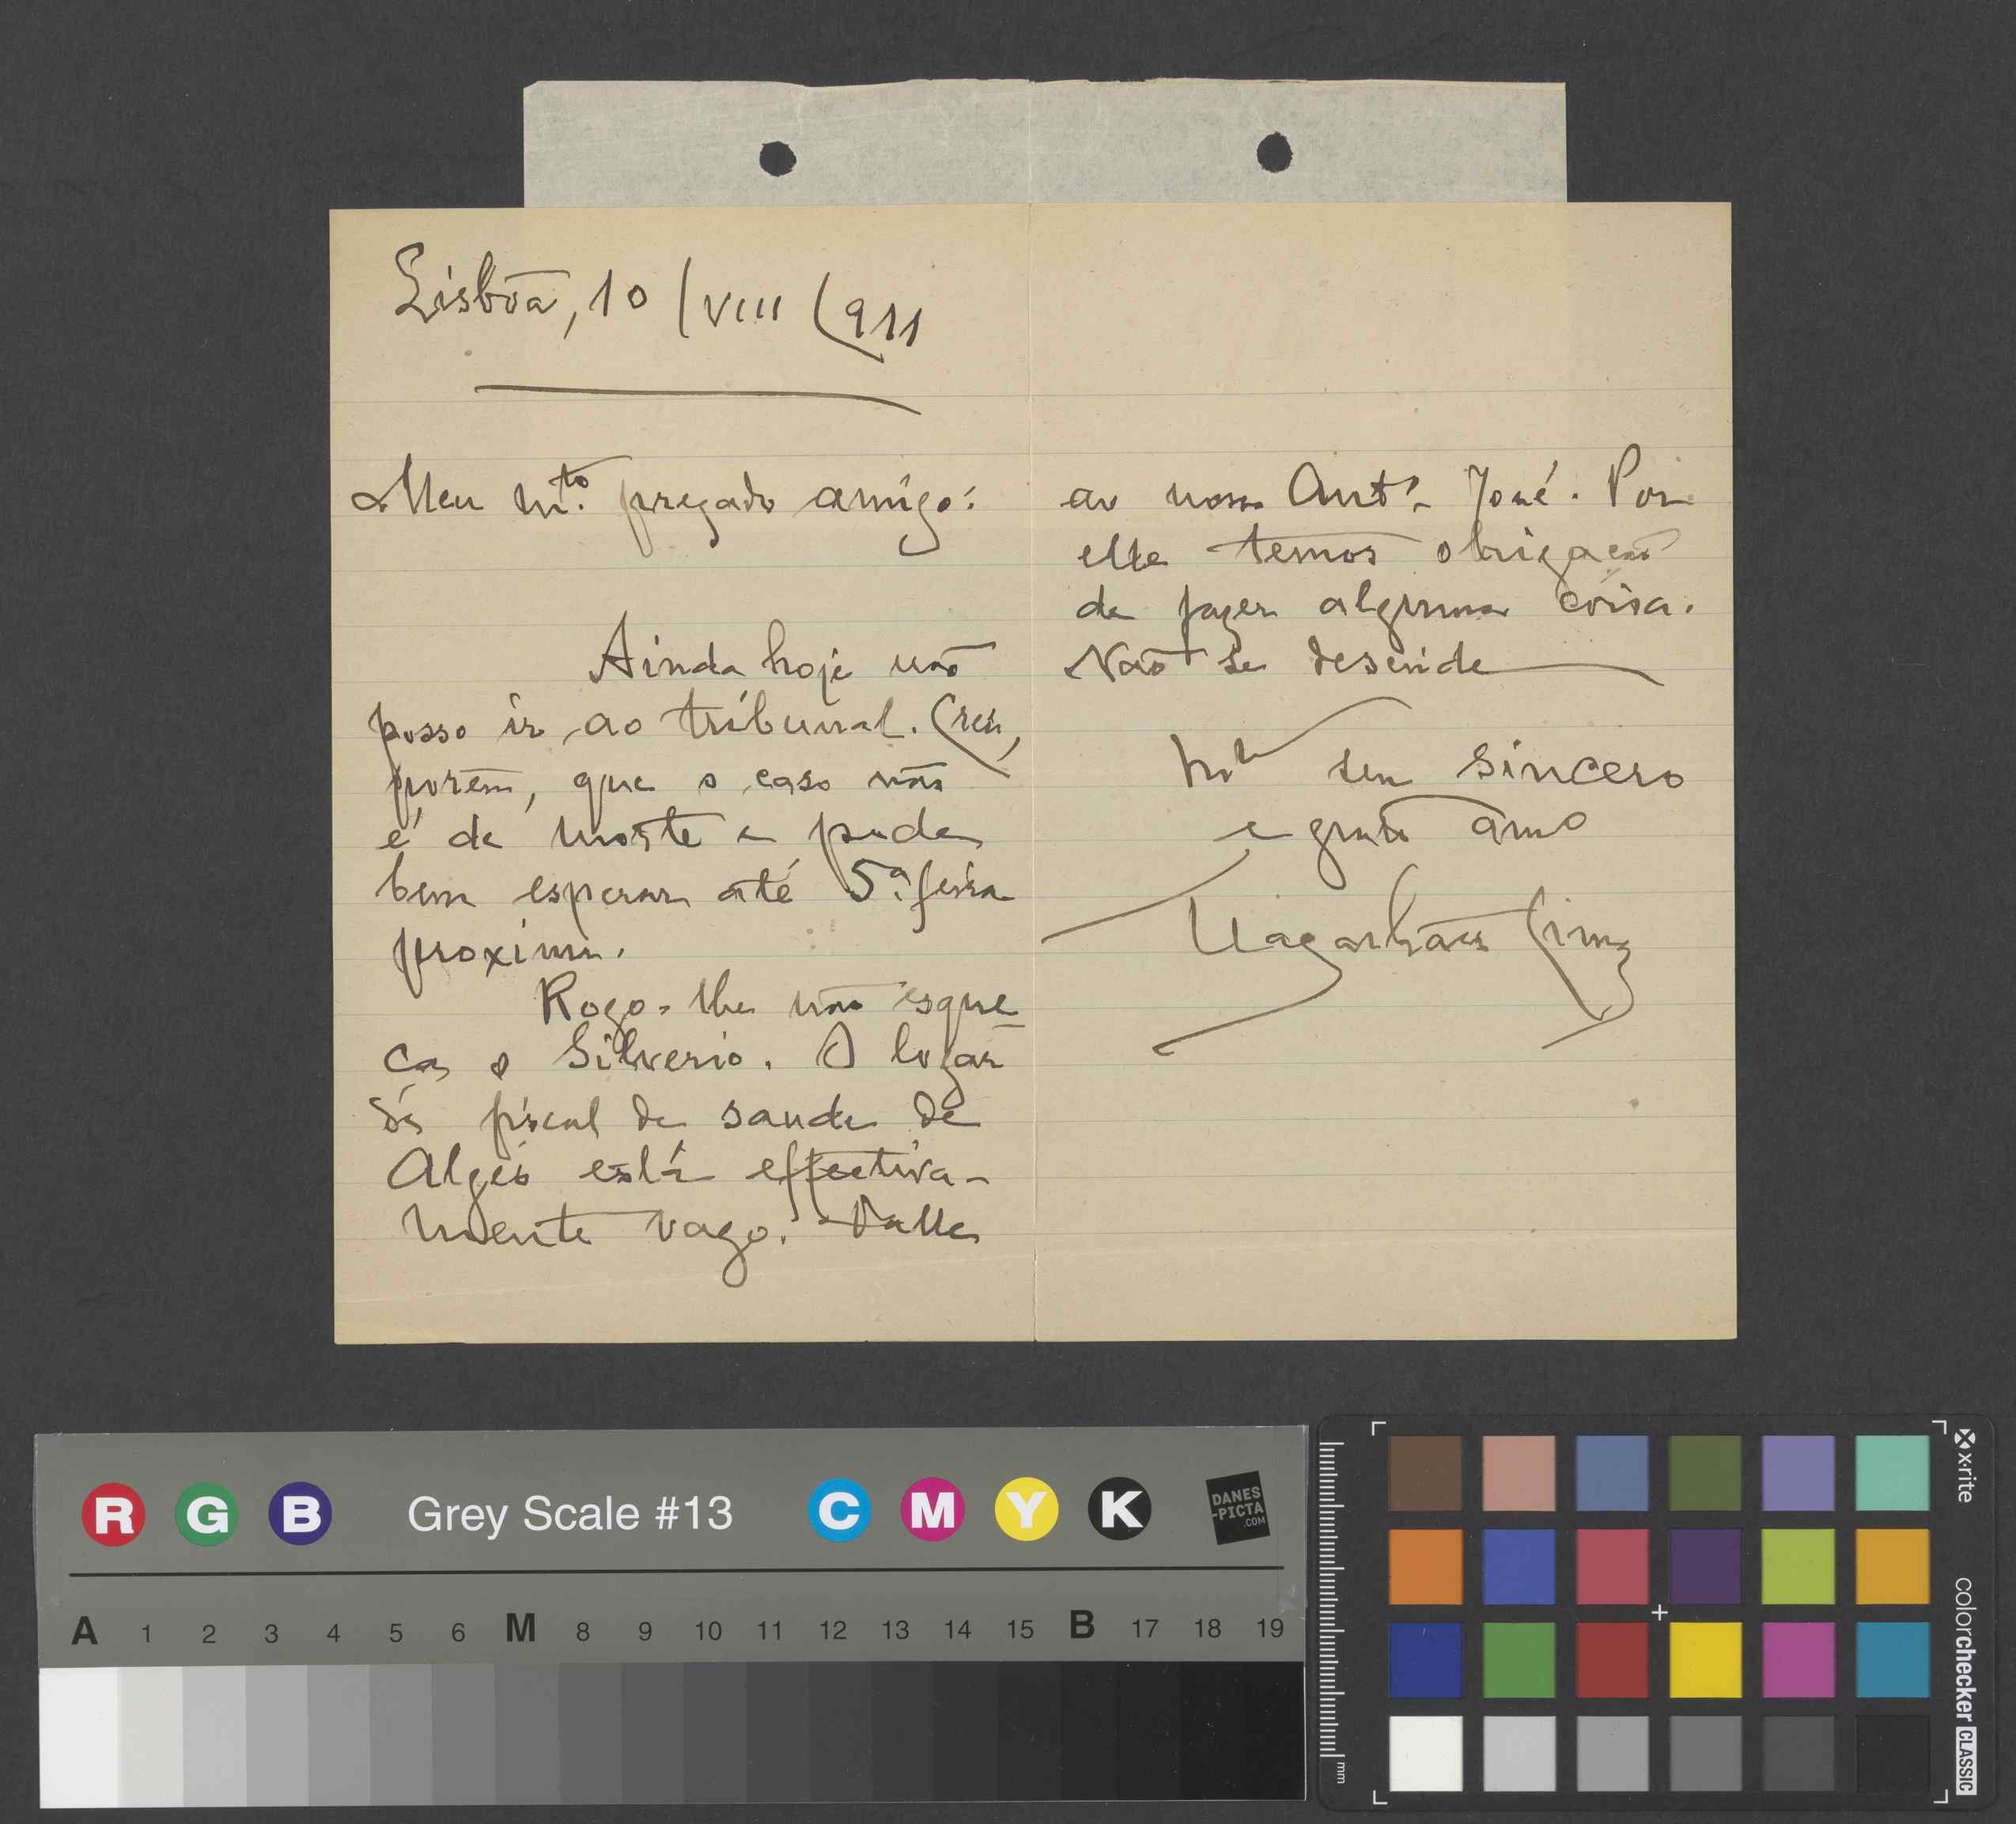 Lisbôa, 10/VIII/911
Meu m.to prezado amigo:
Ainda hoje não
posso ir ao tribunal. Creu,
porém, que o caso não
é de morte e pode
bem esperar até 5ª feira
proxima.
Rogo-lhe não esque-
ça o Silverio. O logar
de fiscal de saude de
Algés está effectiva-
mente vago. Falle
ao nosso Antº José. Por
elle temos obrigação
de fazer alguma coisa.
Não se descuide
seu sincero
e grato amº
Magalhães Lima
R G B Grey Scale #13 C M Y K DANES-PICTA.COM
A 1 2 3 4 5 6 M 8 9 10 11 12 13 14 15 B 17 18 19
x-rite
colorchecker CLASSIC
mm